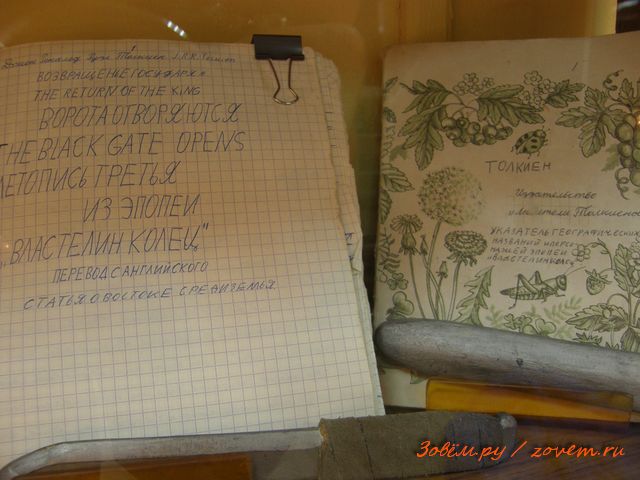 Джон Рональд Руэл Толкиен J.R.R.
ВОЗВРАЩЕНИЕ ГОСУДАРЯ
THE RETURN OF THE KING
ВОРОТА ОТВОРЯЮТСЯ
THE BLACK GATE OPENS
ЛЕТОПИСЬ ТРЕТЬЯ
ИЗ ЭПОПЕИ
„ВЛАСТЕЛИН КОЛЕЦ"
ПЕРЕВОД С АНГЛИЙСКОГО
СТАТЬЯ О ВОСТОКЕ СРЕДИЗЕМЬЯ
ТОЛКИЕН
Издательство
УКАЗАТЕЛЬ ГЕОГРАФИЧЕСКИХ
НАЗВАНИЙ И ПЕРСО-
НАЖЕЙ ЭПОПЕИ
Зовём.ру / zovem.ru